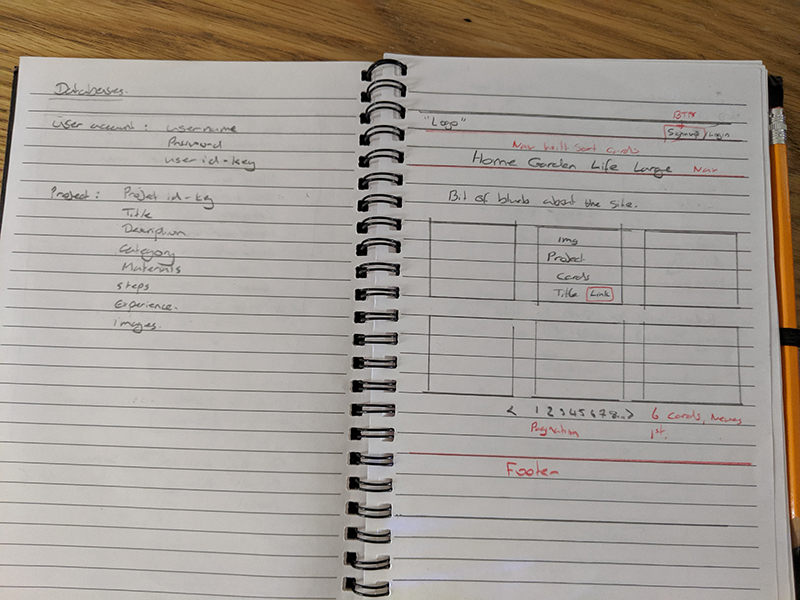 Databases.
User account : username
Password
user id-key
Project : Projet id-key
Title
Description
Category
Materials
steps
Experience.
images.
BTN
"Logo"
Signup / Login
Nav will sort cards
Home Garden Life Large Nav
Bit of blurb about the site.
img
Project
Cards
Title Link
< 1 2 3 4 5 6 7 8... > 6 cards, Newes
Pagination 1st.
Footer